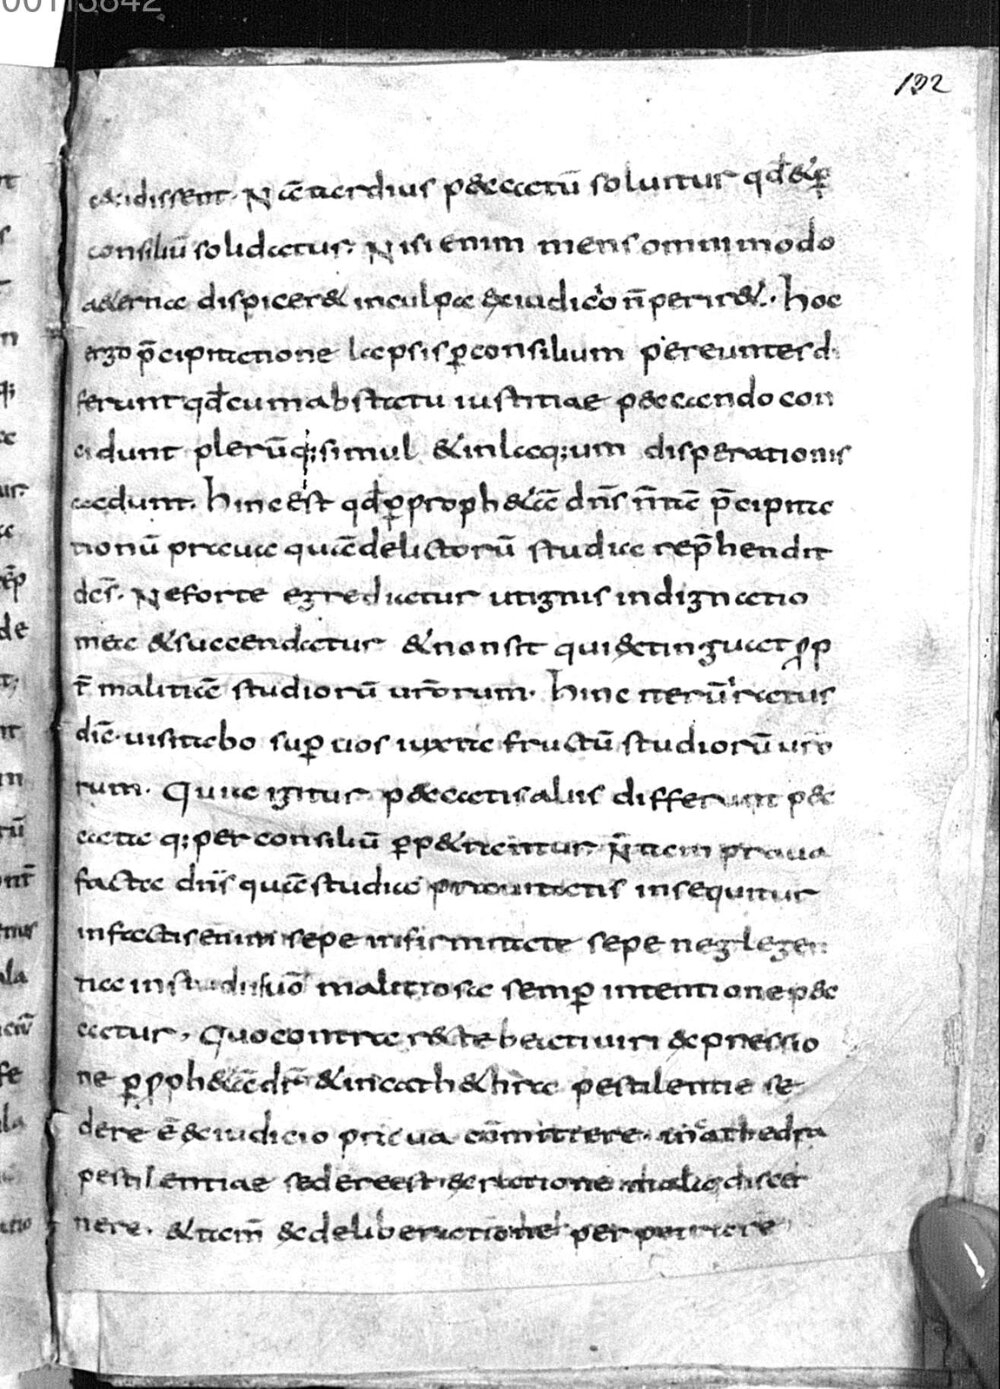 00113842
132
cidissent. Nā tardius peccatū soluitur qđ &p̄
consiliū solidatur. Nisi enim mens omnimodo
aeterna dispiceret in culpa ex iudicio n̄ periret. hoc
ergo p̄cipitatione lapsis p̄ consilium pereuntes di
ferunt qđ cum ab statu iustitiae peccando con
cidunt plerūq; simul & in laq;um disperationis
cadunt. hinc ēst qđ p̄ prophetā dn̄s n̄ tā p̄cipita
tionū praua quā delictorū studia rep̄hendit
dc̄s. Ne forte egrediatur ut ignis indignatio
mea & succendatur & non sit qui extinguat p̄p
t̄ malitiā studiorū ur̄orum. hinc iterū iratus
dic̄. uisitabo sup̄ uos iuxta fructū studiorū uro
rum. Quia igitur peccatis aliis differunt pec
cata q; per consiliū p̄petrantur. N̄ tam praua
facta dn̄s quā studia prauitatis insequitur
in factis enim sepe infirmitate sepe neglegen
tia in studiis uō malitiosa semp̄ intentione pec
catur. Quo contra recte beati uiri expressio
ne p̄ p̄phetā dr̄ & in cathethra pestilentie se
dere ē ex iudicio praua cōmittere. in cathedra
pestilentiae sedere est ex ratione mala discer
nere. & tam̄ ex deliberatione perpetrare